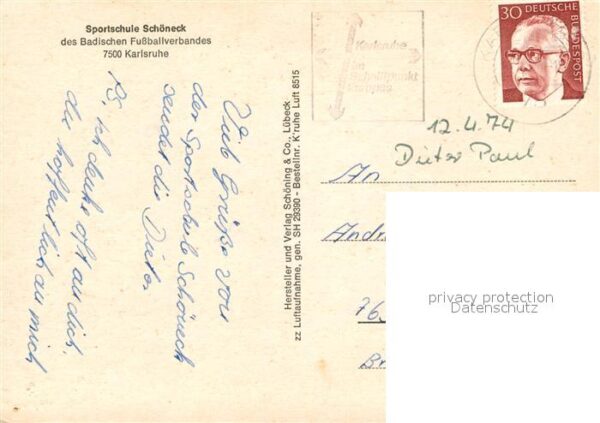 Sportschule Schöneck
des Badischen Fußballverbandes
7500 Karlsruhe
Viele Grüße von
der Sportschule Schöneck
sendet die Dieter
PS, ich denke oft an dich,
du hoffentlich an mich
Hersteller und Verlag Schöning & Co., Lübeck
zz Luftaufnahme, gen. SH 29390 - Bestellnr. K'ruhe Luft 8515
Karlsruhe
im
Schnittpunkt
Europas
30 DEUTSCHE
BUNDESPOST
12.4.74
Dieter Paul
An
Andr
76
Br
privacy protection
Datenschutz